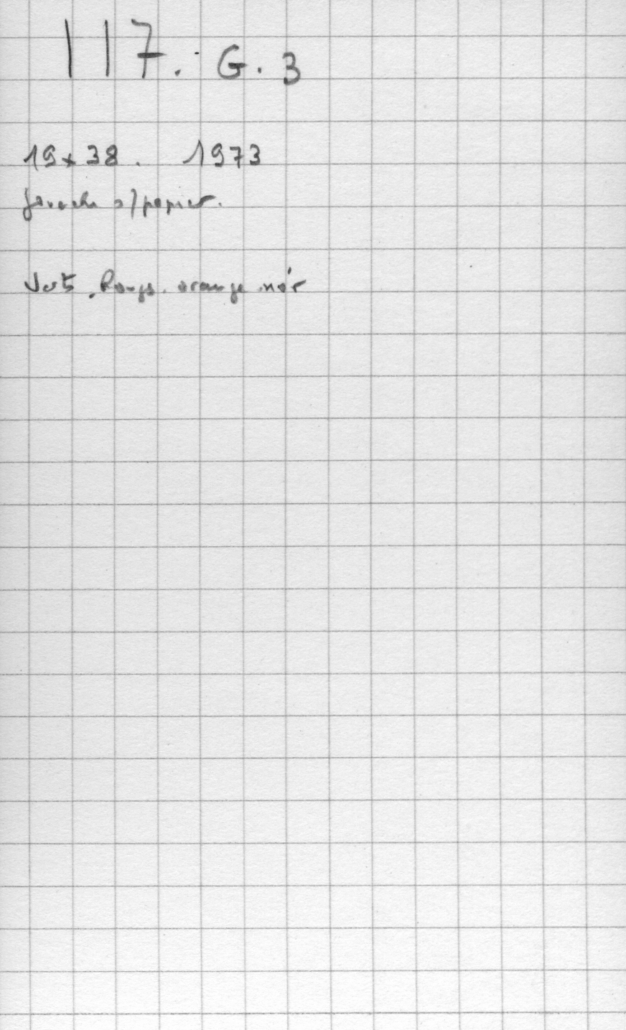 117. G. 3
19x38. 1973
gouache s/papier.
Verts, Rouge. orange noir